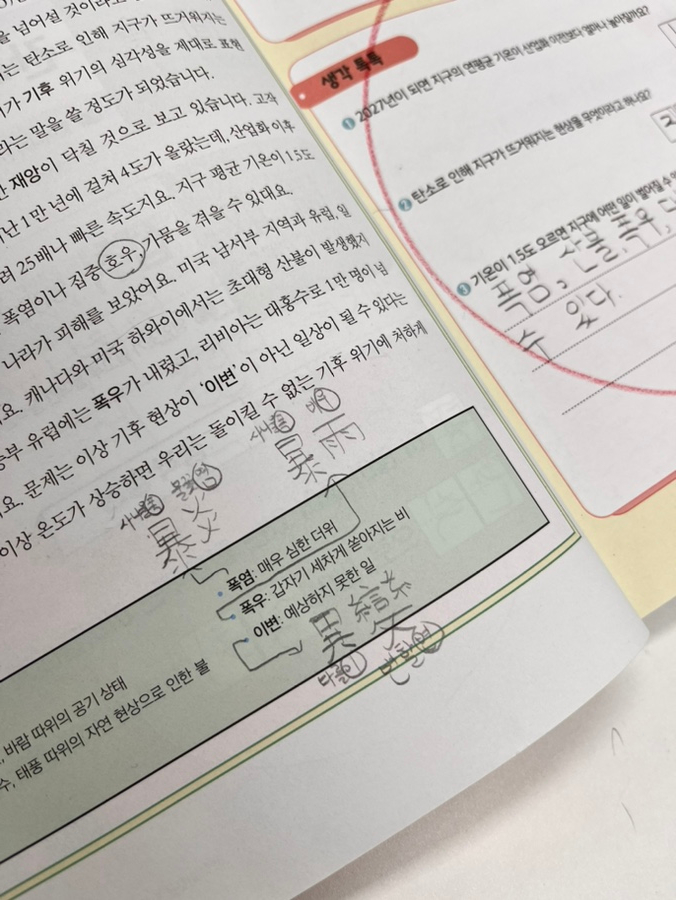 을 넘어설 것이라고
는 탄소로 인해 지구가 뜨거워지는
가 기후 위기의 심각성을 제대로 표현
라는 말을 쓸 정도가 되었습니다.
재앙이 닥칠 것으로 보고 있습니다. 고작
난 1만 년에 걸쳐 4도가 올랐는데, 산업화 이후
려 25배나 빠른 속도지요. 지구 평균 기온이 1.5도
폭염이나 집중 호우, 가뭄을 겪을 수 있대요.
나라가 피해를 보았어요. 미국 남서부 지역과 유럽, 일
요. 캐나다와 미국 하와이에서는 초대형 산불이 발생했지
중부 유럽에는 폭우가 내렸고, 리비아는 대홍수로 1만 명이 넘
요. 문제는 이상 기후 현상이 '이변'이 아닌 일상이 될 수 있다는
이상 온도가 상승하면 우리는 돌이킬 수 없는 기후 위기에 처하게
사나울 폭 비 우
暴雨
사나울 폭 불꽃 염
暴炎
폭염: 매우 심한 더위
폭우: 갑자기 세차게 쏟아지는 비
이변: 예상하지 못한 일
異變
다를 이 변할 변
, 바람 따위의 공기 상태
수, 태풍 따위의 자연 현상으로 인한 불
생각 톡톡
1 2027년이 되면 지구의 연평균 기온이 산업화 이전보다 얼마나 높아질까요?
2 탄소로 인해 지구가 뜨거워지는 현상을 무엇이라고 하나요?
3 기온이 1.5도 오르면 지구에 어떤 일이 벌어질 수
폭염, 산불, 폭우,
수 있다.